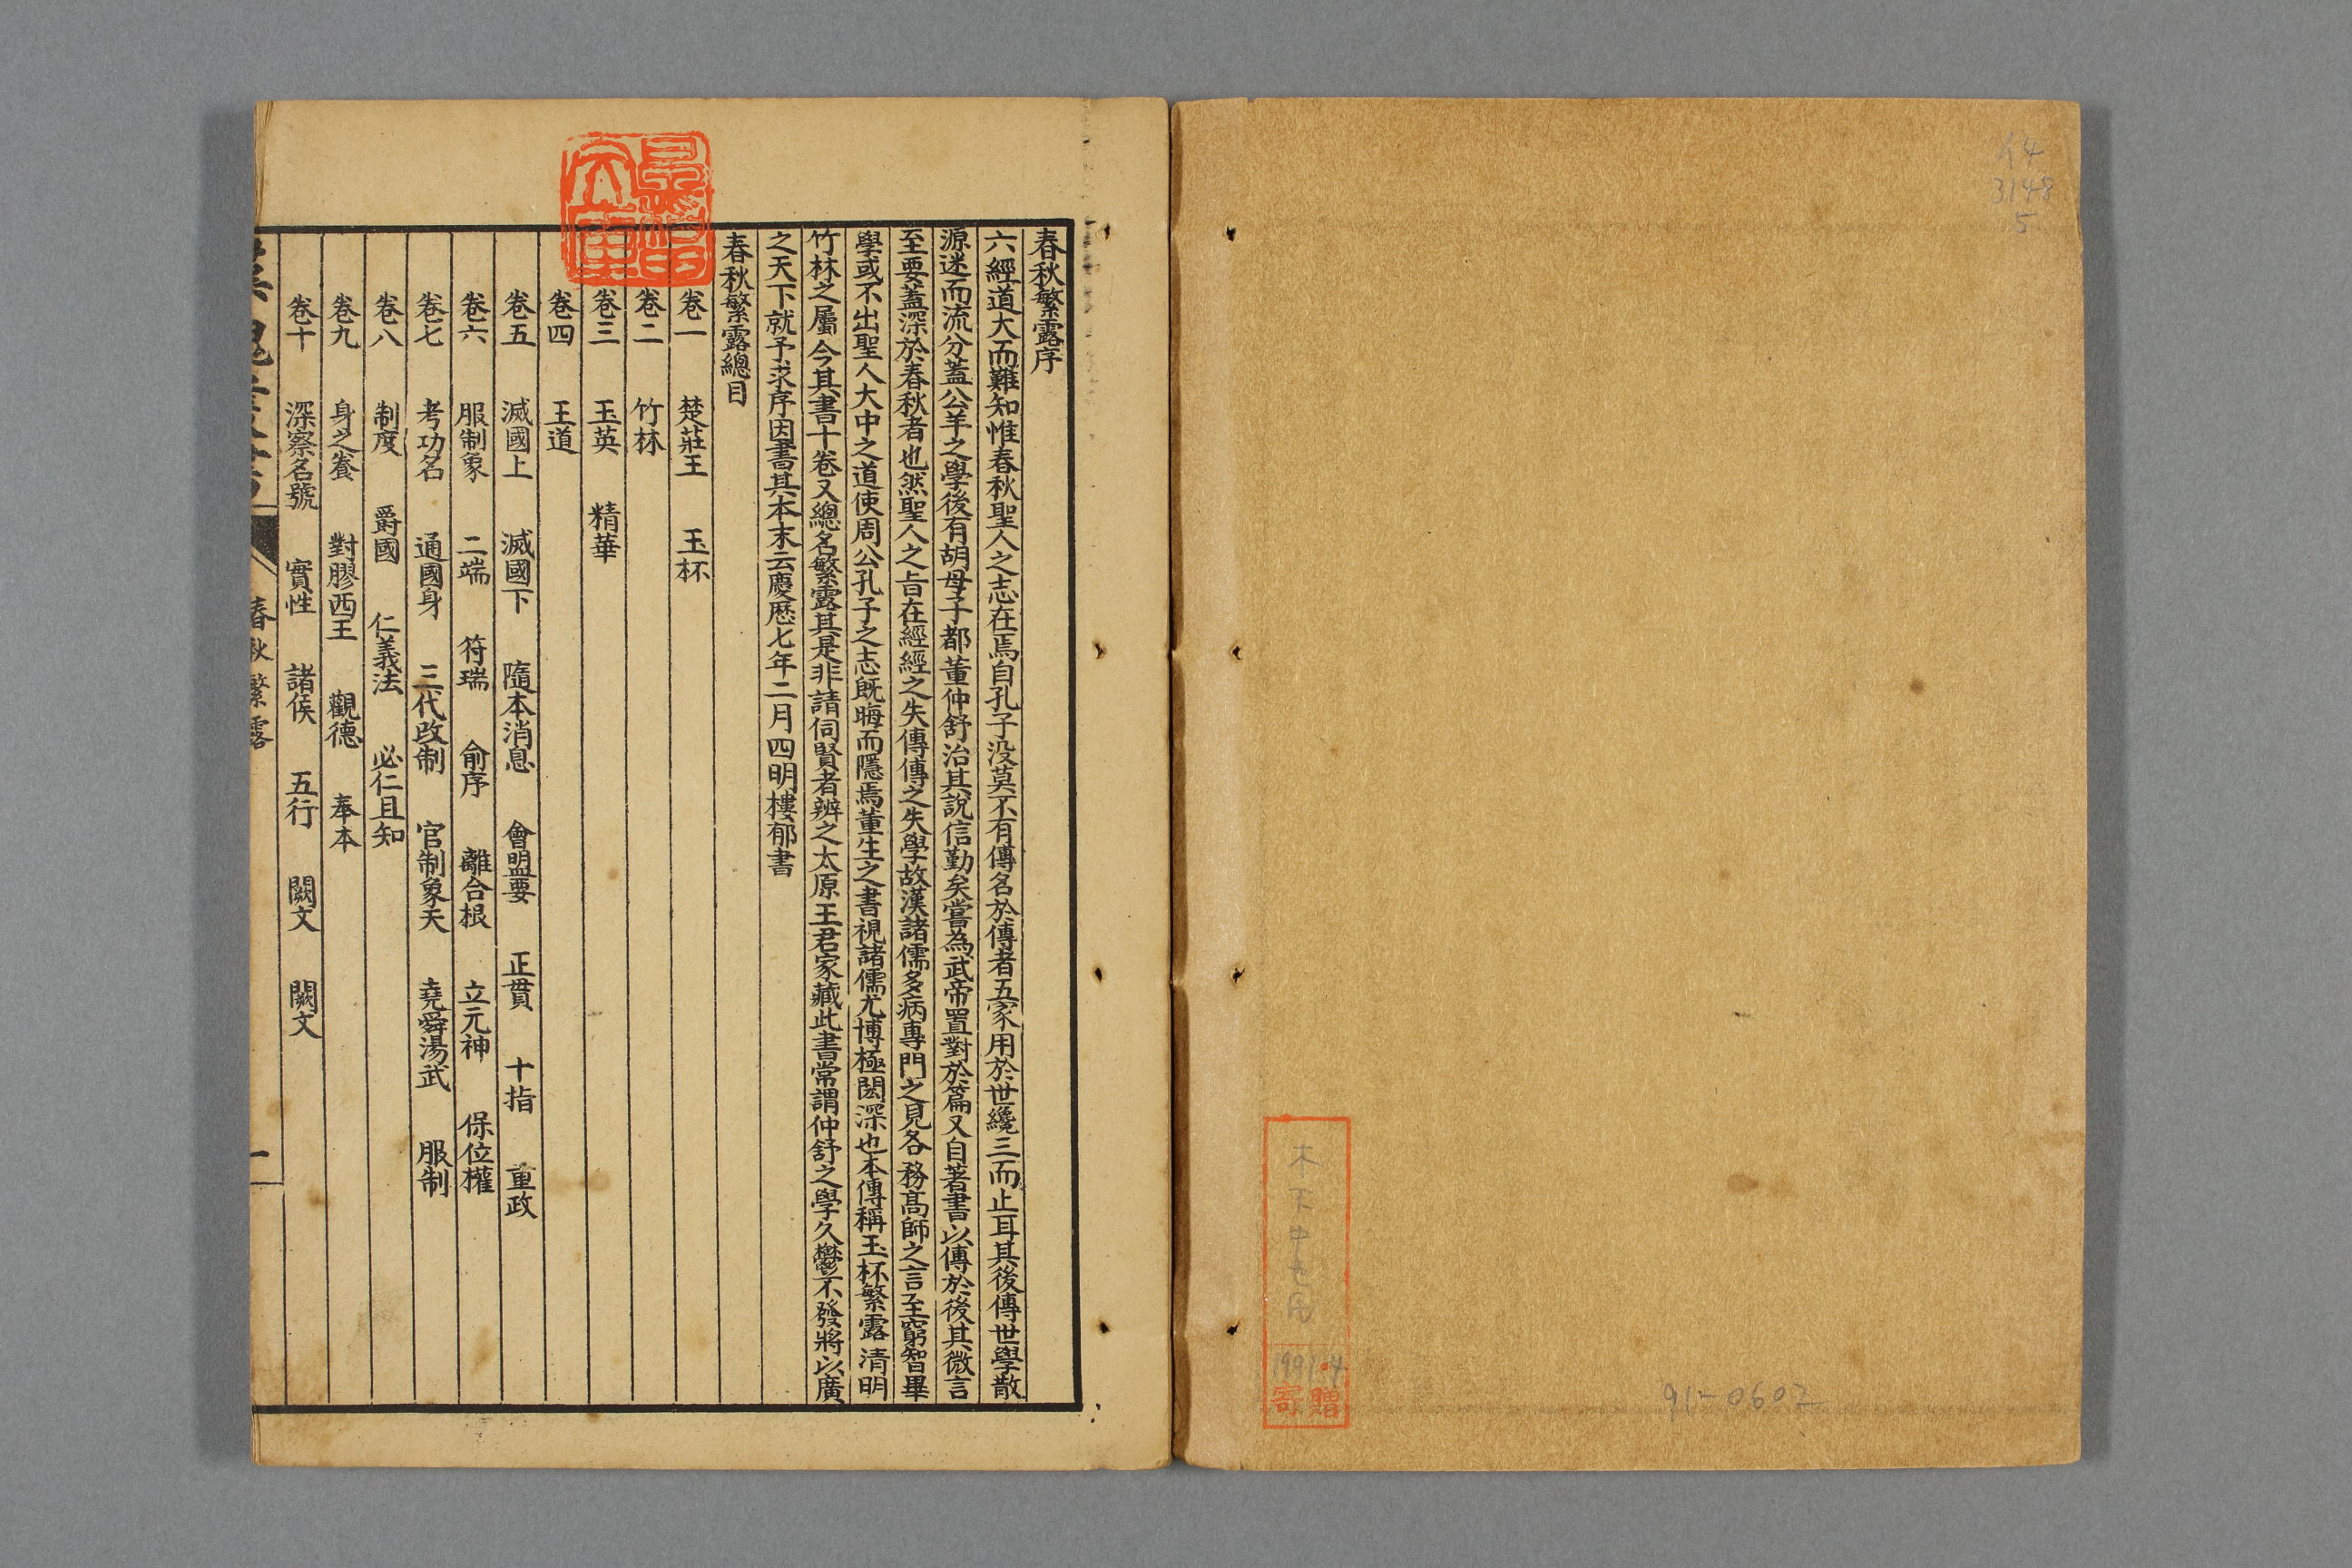 イ4
3148
5
木下
1991.4
寄贈
91-0602
春秋繁露序
六經道大而難知惟春秋聖人之志在焉自孔子没莫不有傳名於傳者五家用於世纔三而止耳其後傳世學散
源迷而流分蓋公羊之學後有胡母子都董仲舒治其說信勤矣嘗為武帝置對於篇又自著書以傳於後其微言
至要蓋深於春秋者也然聖人之旨在經經之失傳傳之失學故漢諸儒多病專門之見各務高師之言至窮智畢
學或不出聖人大中之道使周公孔子之志既晦而隱焉董生之書視諸儒尤博極閎深也本傳稱玉杯繁露清明
竹林之屬今其書十卷又總名繁露其是非請伺賢者辨之太原王君家藏此書常謂仲舒之學久鬱不發將以廣
之天下就予求序因書其本末云慶歷七年二月四明樓郁書
春秋繁露總目
卷一 楚莊王 玉杯
卷二 竹林
卷三 玉英 精華
卷四 王道
卷五 滅國上 滅國下 隨本消息 會盟要 正貫 十指 重政
卷六 服制象 二端 符瑞 俞序 離合根 立元神 保位權
卷七 考功名 通國身 三代改制 官制象天 堯舜湯武 服制
卷八 制度 爵國 仁義法 必仁且知
卷九 身之養 對膠西王 觀德 奉本
卷十 深察名號 實性 諸侯 五行 闕文 闕文
春秋繁露 一